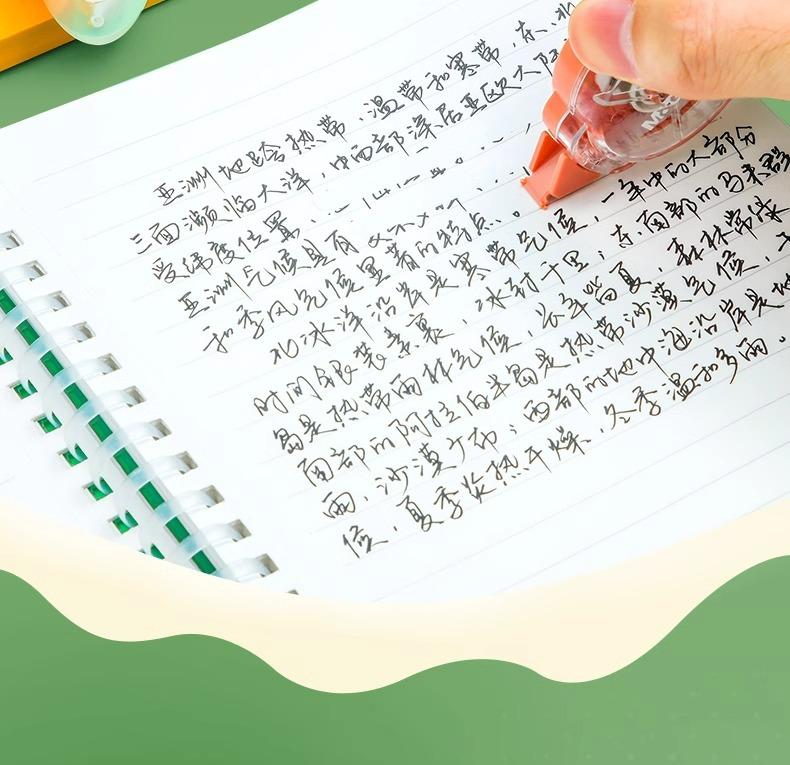 亚洲地跨热带、温带和寒带,东、北
三面濒临大洋,中西部深居亚欧大陆
受纬度位置、
亚洲气候具有
和季风气候显著的特点。
北冰洋沿岸是寒带气候,一年中的大部分
时间银装素裹,冰封千里;东南部的马来群
岛是热带雨林气候,长年皆夏,森林常绿
南部的阿拉伯半岛是热带沙漠气候,干
雨,沙漠广布;西部的地中海沿岸是地
候,夏季炎热干燥、冬季温和多雨。